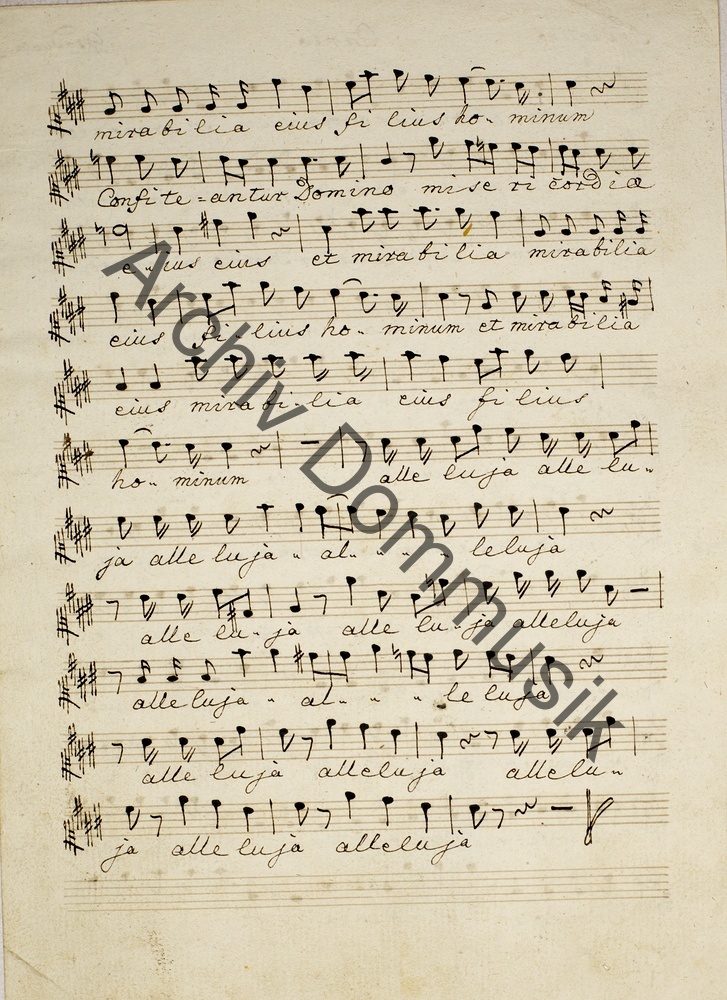 mirabilia eius filius ho- minum
Confite=antur Domino misericordiæ
e-ius eius et mirabilia mirabilia
eius fi-lius ho- minum et mirabilia
eius mirabi-lia eius filius
ho- minum alle luja alle lu-
ja alle luja " al- " " " leluja
alle lu-ja alle lu-ja alleluja
alleluja " al- " " le luja
alle luja alleluja allelu-
ja alle luja alleluja
Archiv Dommusik